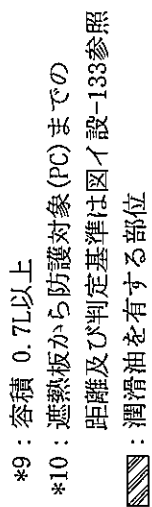 *9 : 容積 0.7L以上
*10 : 遮熱板から防護対象(PC)までの
距離及び判定基準は図イ設-133参照
: 潤滑油を有する部位